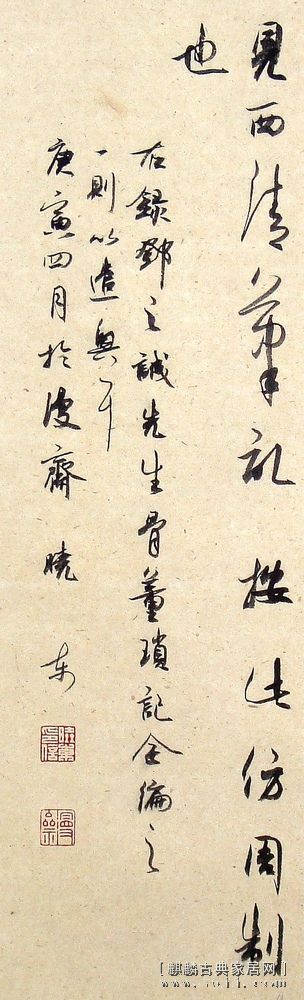 見西清筆記按此仿周制
也
右錄鄧之誠先生骨董瑣記全編之
一則以遣興耳
庚寅四月於
齋曉東
[麒麟古典家居网]